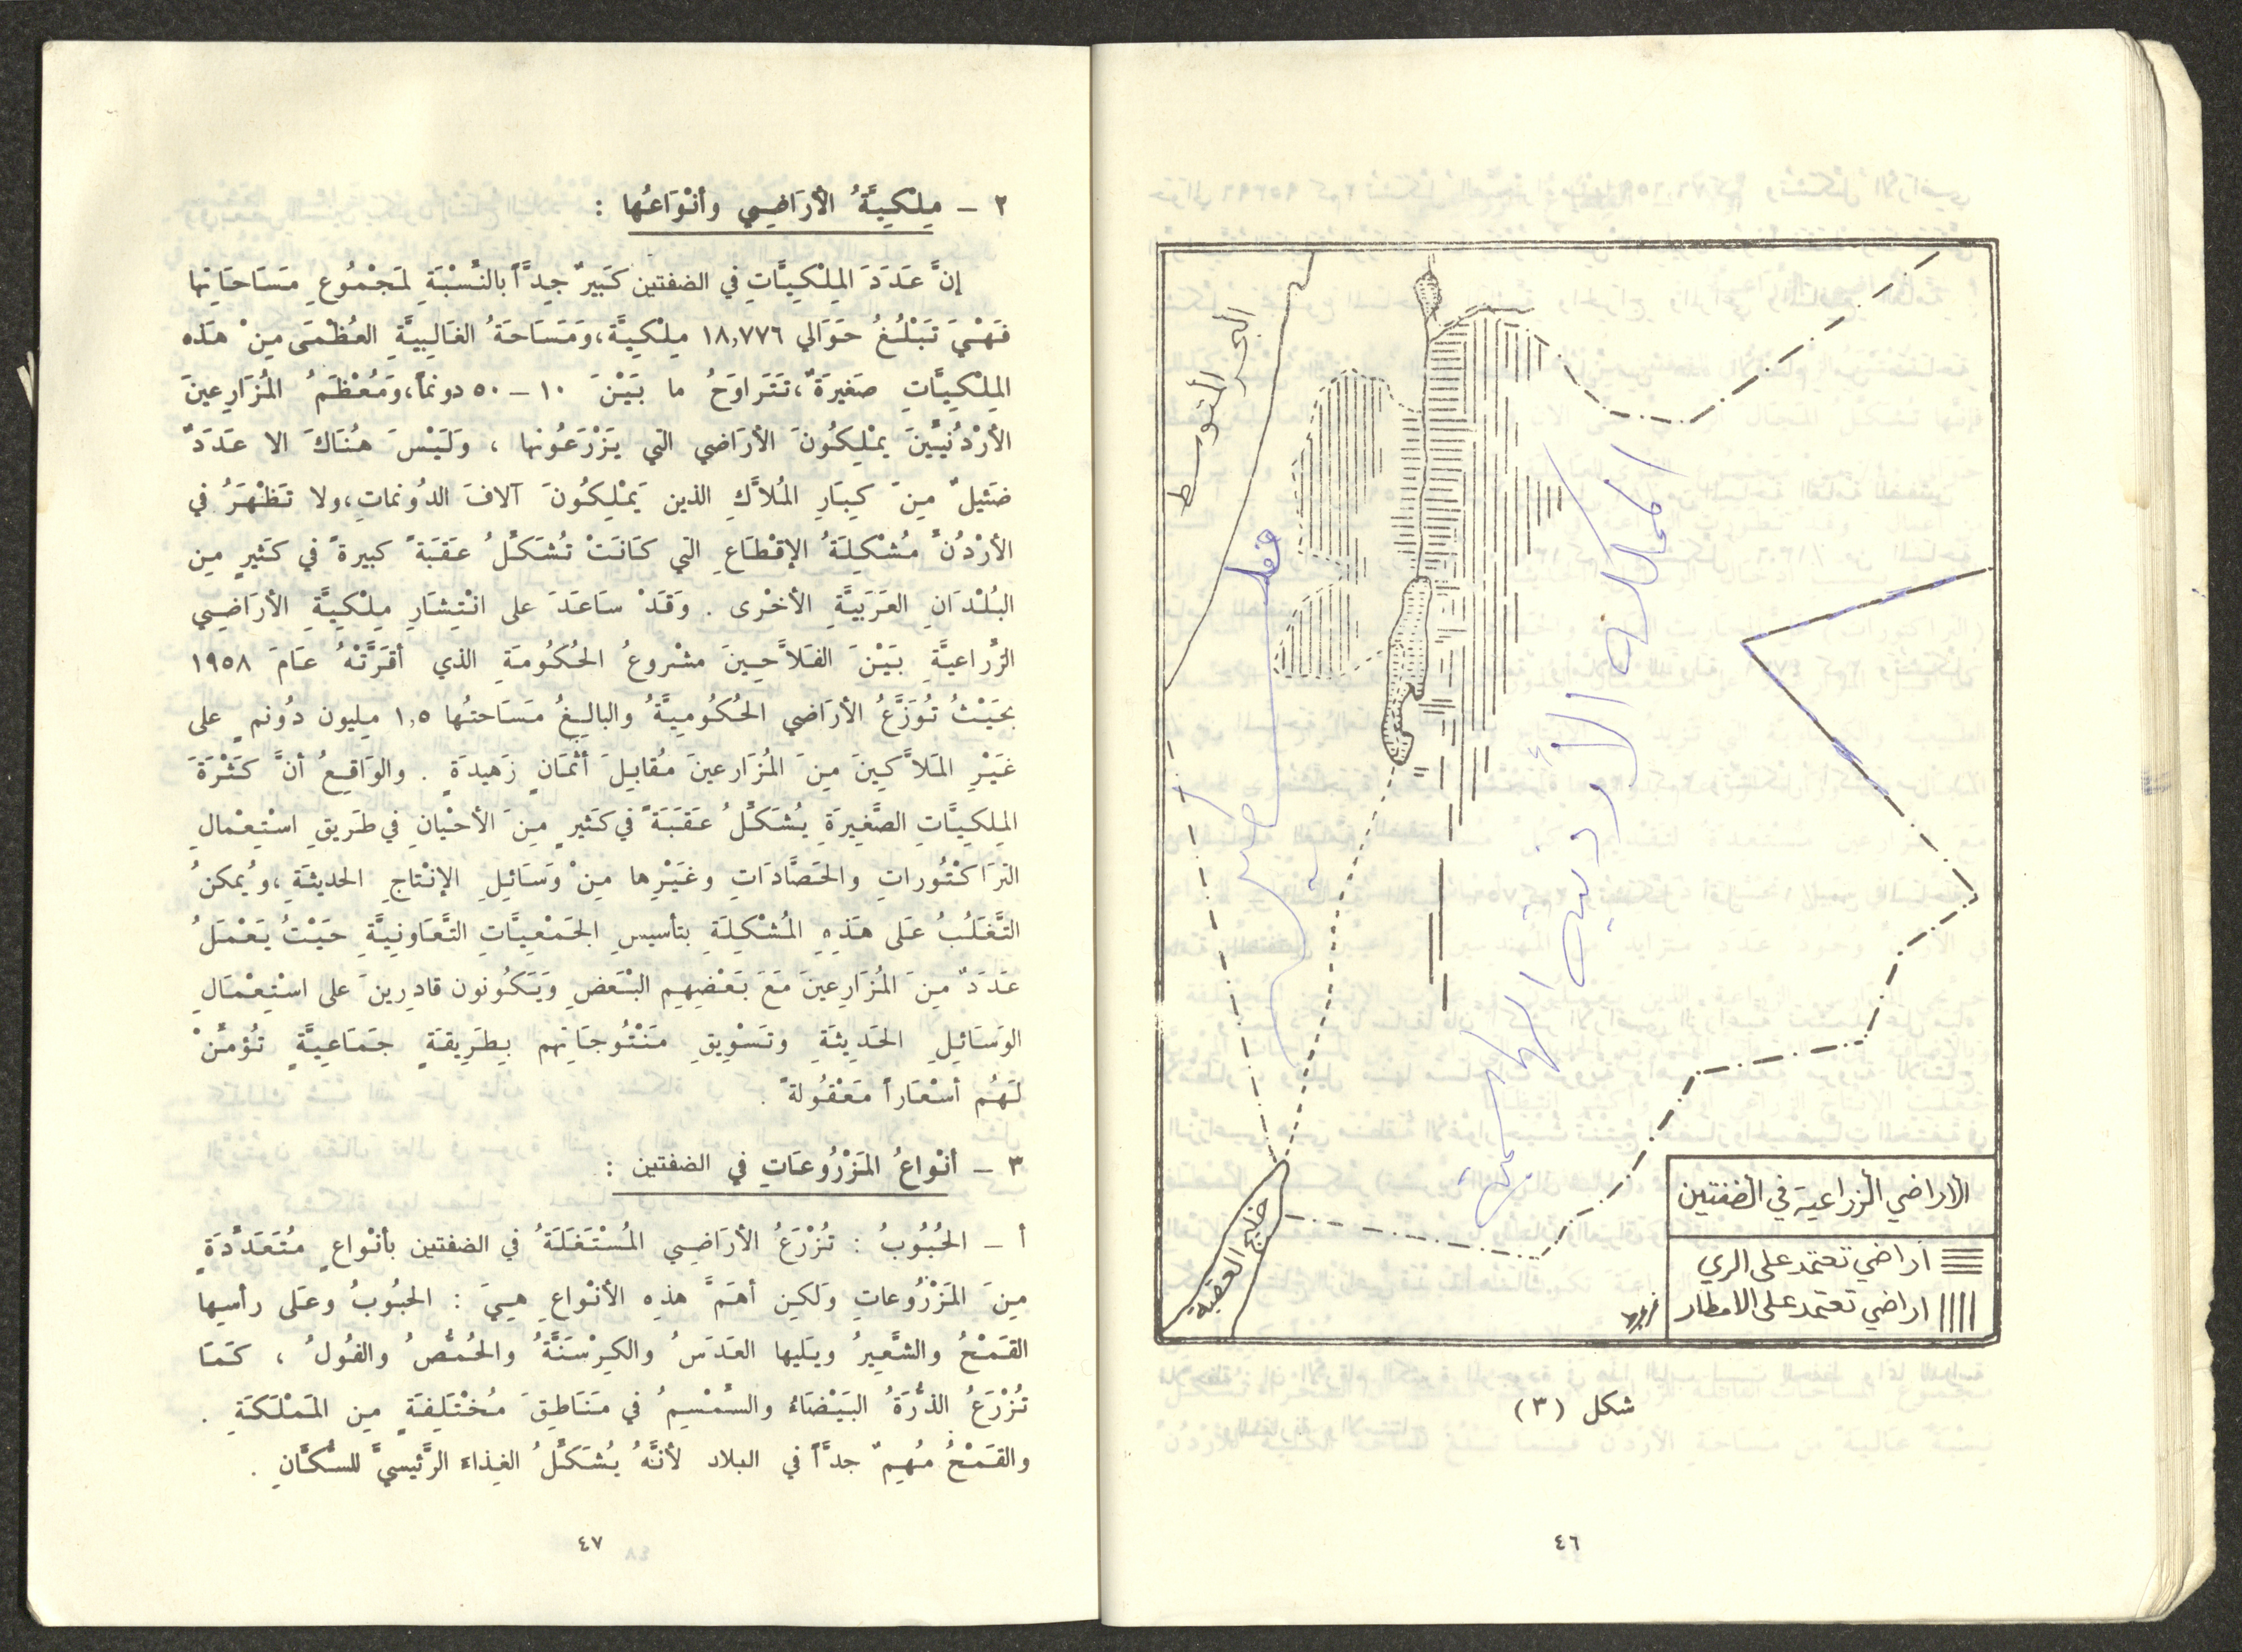 البحر المتوسط
المملكة الأردنية الهاشمية
خليج العقبة
الاراضي الزراعية في الضفتين
أراضي تعتمد على الري
اراضي تعتمد على الامطار
شكل (٣)
٤٦
٢ - مِلْكِيَّةُ الأرَاضِي وأنْوَاعُها :
إنَّ عَدَدَ المِلْكِيَّاتِ في الضفتين كَبيرٌ جِدَّاً بالنِّسْبَةِ لمَجْمُوعِ مَسَاحَاتِها
فَهْيَ تَبْلُغُ حَوَالي ١٨,٧٧٦ مِلْكِيَّة، وَمَسَاحَةُ الغَالِبِيَّةِ العُظْمَى مِنْ هَذه
المِلْكِيَّاتِ صَغيرَةٌ، تَتَراوَحُ ما بَيْنَ ١٠ - ٥٠ دونماً، وَمُعْظَمُ المُزَارِعينَ
الأرْدُنِيِّينَ يمْلِكُونَ الأرَاضي التي يَزْرَعُونها ، وَلَيْسَ هُنَاكَ الا عَدَدٌ
ضَئيلٌ مِنَ كِبَارِ المُلاَّكِ الذين يَمْلِكُونَ آلافَ الدُونماتِ، ولا تَظْهَرُ في
الأرْدُنِّ مُشْكِلَةُ الإقْطَاعِ التي كَانَتْ تُشَكِّلُ عَقَبَةً كبيرةً في كَثيرٍ مِن
البُلْدَانِ العَرَبيَّةِ الأخْرى . وَقَدْ سَاعَدَ على انْتِشَارِ مِلْكِيَّةِ الأرَاضِي
الزِّراعيَّةِ بَيْنَ الفَلاَّحِينَ مشْروعُ الحُكُومَةِ الذي أقَرَّتْهُ عَامَ ١٩٥٨
بحَيْثُ تُوَزَّعُ الأرَاضي الحُكُوميَّةُ والبالِغُ مَسَاحتُها ١,٥ مِليون دُونم على
غَيْرِ المَلاَّكِينَ مِنَ المُزَارعينَ مُقابِلَ أثْمَانٍ زَهيدَةٍ . والوَاقِعُ أنَّ كَثْرَةَ
المِلكِيَّاتِ الصَّغِيرَةِ يُشَكِّلُ عَقَبَةً في كَثيرٍ مِنَ الأحْيَانِ في طَريقِ اسْتِعْمالِ
التراكْتُوراتِ والحَصَّادَاتِ وغَيْرِها مِنْ وَسَائِلِ الإنْتاجِ الحديثَةِ، ويُمكنُ
التَّغَلُّبُ عَلَى هَذِهِ المُشْكِلَةِ بتأسيسِ الجَمْعِيَّاتِ التَّعَاونِيَّةِ حَيْثُ يَعْمَلُ
عَدَدٌ مِنَ المُزَارِعينَ مَعَ بَعْضِهِم البْعَضِ وَيَكُونون قادِرينَ على اسْتِعْمَالِ
الوَسَائِلِ الحَدِيثَةِ وتَسْوِيقِ مَنْتُوجَاتِهم بِطَرِيقَةٍ جَمَاعِيَّةٍ تُؤمِّنْ
لَهُم أسْعَاراً مَعْقُولةً .
٣ - أنْواعُ المَزْرُوعَاتِ في الضفتين :
أ - الحُبُوبُ : تُزْرَعُ الأرَاضِي المُسْتَغَلَةُ في الضفتين بأنْواعٍ مُتَعَدِّدَةٍ
مِنَ المَزْرُوعاتِ وَلكِن أهَمَّ هذِه الأنْواعِ هِيَ : الحبُوبُ وعَلى رأسِها
القَمْحُ والشَّعيرُ ويَليها العَدَسُ والكِرْسَنَّةُ والحُمُّصُ والفُولُ ، كَمَا
تُزْرَعُ الذُّرَةُ البَيْضَاءُ والسُمْسِمُ في مَنَاطِقَ مُخْتَلِفَةٍ مِن المَمْلَكَةِ .
والقَمْحُ مُهِمٌ جدَّاً في البلاد لأنَّهُ يُشَكِّلُ الغِذاءَ الرَّئيسيَّ للسُّكَّانِ .
٤٧